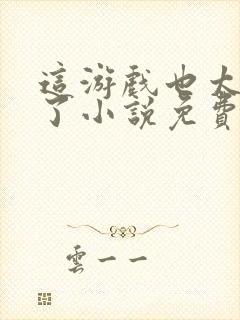 這游戲也太
了小說免費
雲一一